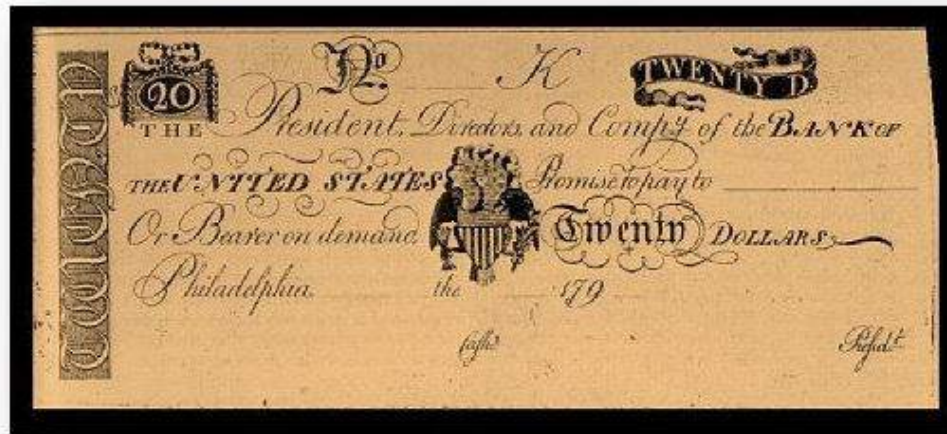 TWENTY
20
No K TWENTY D.
THE President, Directors, and Compy. of the BANK OF
THE UNITED STATES Promise to pay to
Or Bearer on demand Twenty DOLLARS
Philadelphia the 179
Cashr. Presidt.